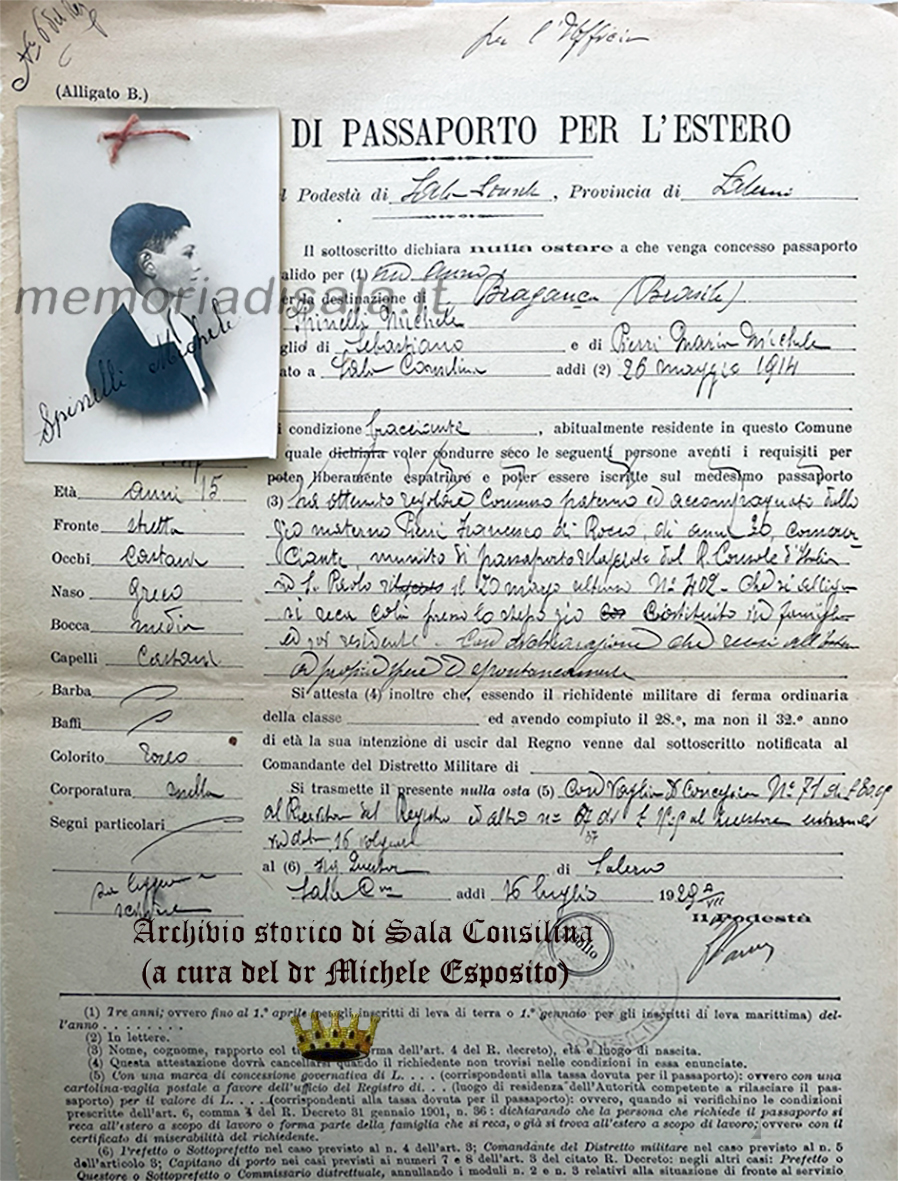 per l'Ufficio
(Alligato B.)
DI PASSAPORTO PER L'ESTERO
l Podestà di Sala Consilina, Provincia di Salerno
Il sottoscritto dichiara nulla ostare a che venga concesso passaporto
alido per (1) un anno
er la destinazione di Bragança (Brasile)
Spinelli Michele
glio di Sebastiano e di Pierri Maria Michele
ato a Sala Consilina addì (2) 26 maggio 1914
i condizione bracciante, abitualmente residente in questo Comune
quale dichiara voler condurre seco le seguenti persone aventi i requisiti per
poter liberamente espatriare e poter essere iscritte sul medesimo passaporto
(3) ha ottenuto regolare consenso paterno ed accompagnato dallo
zio materno Pierri Francesco di Rocco, di anni 20, commer
ciante, munito di passaporto rilasciato dal R. Console d'Italia
a S. Paolo il 20 marzo ultimo N° 402 - che si allega
si reca colà presso lo stesso zio costituito in famiglia
ed ivi residente.
Si attesta (4) inoltre che, essendo il richidente militare di ferma ordinaria
della classe ed avendo compiuto il 28.º, ma non il 32.º anno
di età la sua intenzione di uscir dal Regno venne dal sottoscritto notificata al
Comandante del Distretto Militare di
Si trasmette il presente nulla osta (5) Con Vaglia di Concessione N° 71
al Ricevitore del Registro ed altro n°
al (6) Sig. Questore di Salerno
Sala Cna addì 16 luglio 1929 A VII
Il Podestà
Spinelli Michele
Età anni 15
Fronte stretta
Occhi castani
Naso greco
Bocca media
Capelli castani
Barba
Baffi
Colorito roseo
Corporatura snella
Segni particolari
sa leggere e
scrivere
Bollo
memoriadisala.it
Archivio storico di Sala Consilina
(a cura del dr Michele Esposito)
(1) Tre anni; ovvero fino al 1.º aprile (per gli inscritti di leva di terra o 1.º gennaio per gli inscritti di leva marittima) del-
l'anno . . . . . . . .
(2) In lettere.
(3) Nome, cognome, rapporto col rma dell'art. 4 del R. decreto), età e luogo di nascita.
(4) Questa attestazione dovrà cancellarsi quando il richiedente non trovisi nelle condizioni in essa enunciate.
(5) Con una marca di concessione governativa di L. . . . (corrispondenti alla tassa dovuta per il passaporto): ovvero con una
cartolina-vaglia postale a favore dell'ufficio del Registro di. . . . (luogo di residenza dell'Autorità competente a rilasciare il pas-
saporto) per il valore di L. . . . . (corrispondenti alla tassa dovuta per il passaporto): ovvero, quando si verifichino le condizioni
prescritte dell'art. 6, comma 4 del R. Decreto 31 gennaio 1901, n. 36: dichiarando che la persona che richiede il passaporto si
reca all'estero a scopo di lavoro o forma parte della famiglia che si reca, o già si trova all'estero a scopo di lavoro; ovvero con il
certificato di miserabilità del richiedente.
(6) Prefetto o Sottoprefetto nel caso previsto al n. 4 dell'art. 3; Comandante del Distretto militare nel caso previsto al n. 5
dell'articolo 3; Capitano di porto nei casi previsti ai numeri 7 e 8 dell'art. 3 del citato R. Decreto: negli altri casi: Prefetto o
Questore o Sottoprefetto o Commissario distrettuale, annullando i moduli n. 2 e n. 3 relativi alla situazione di fronte al servizio